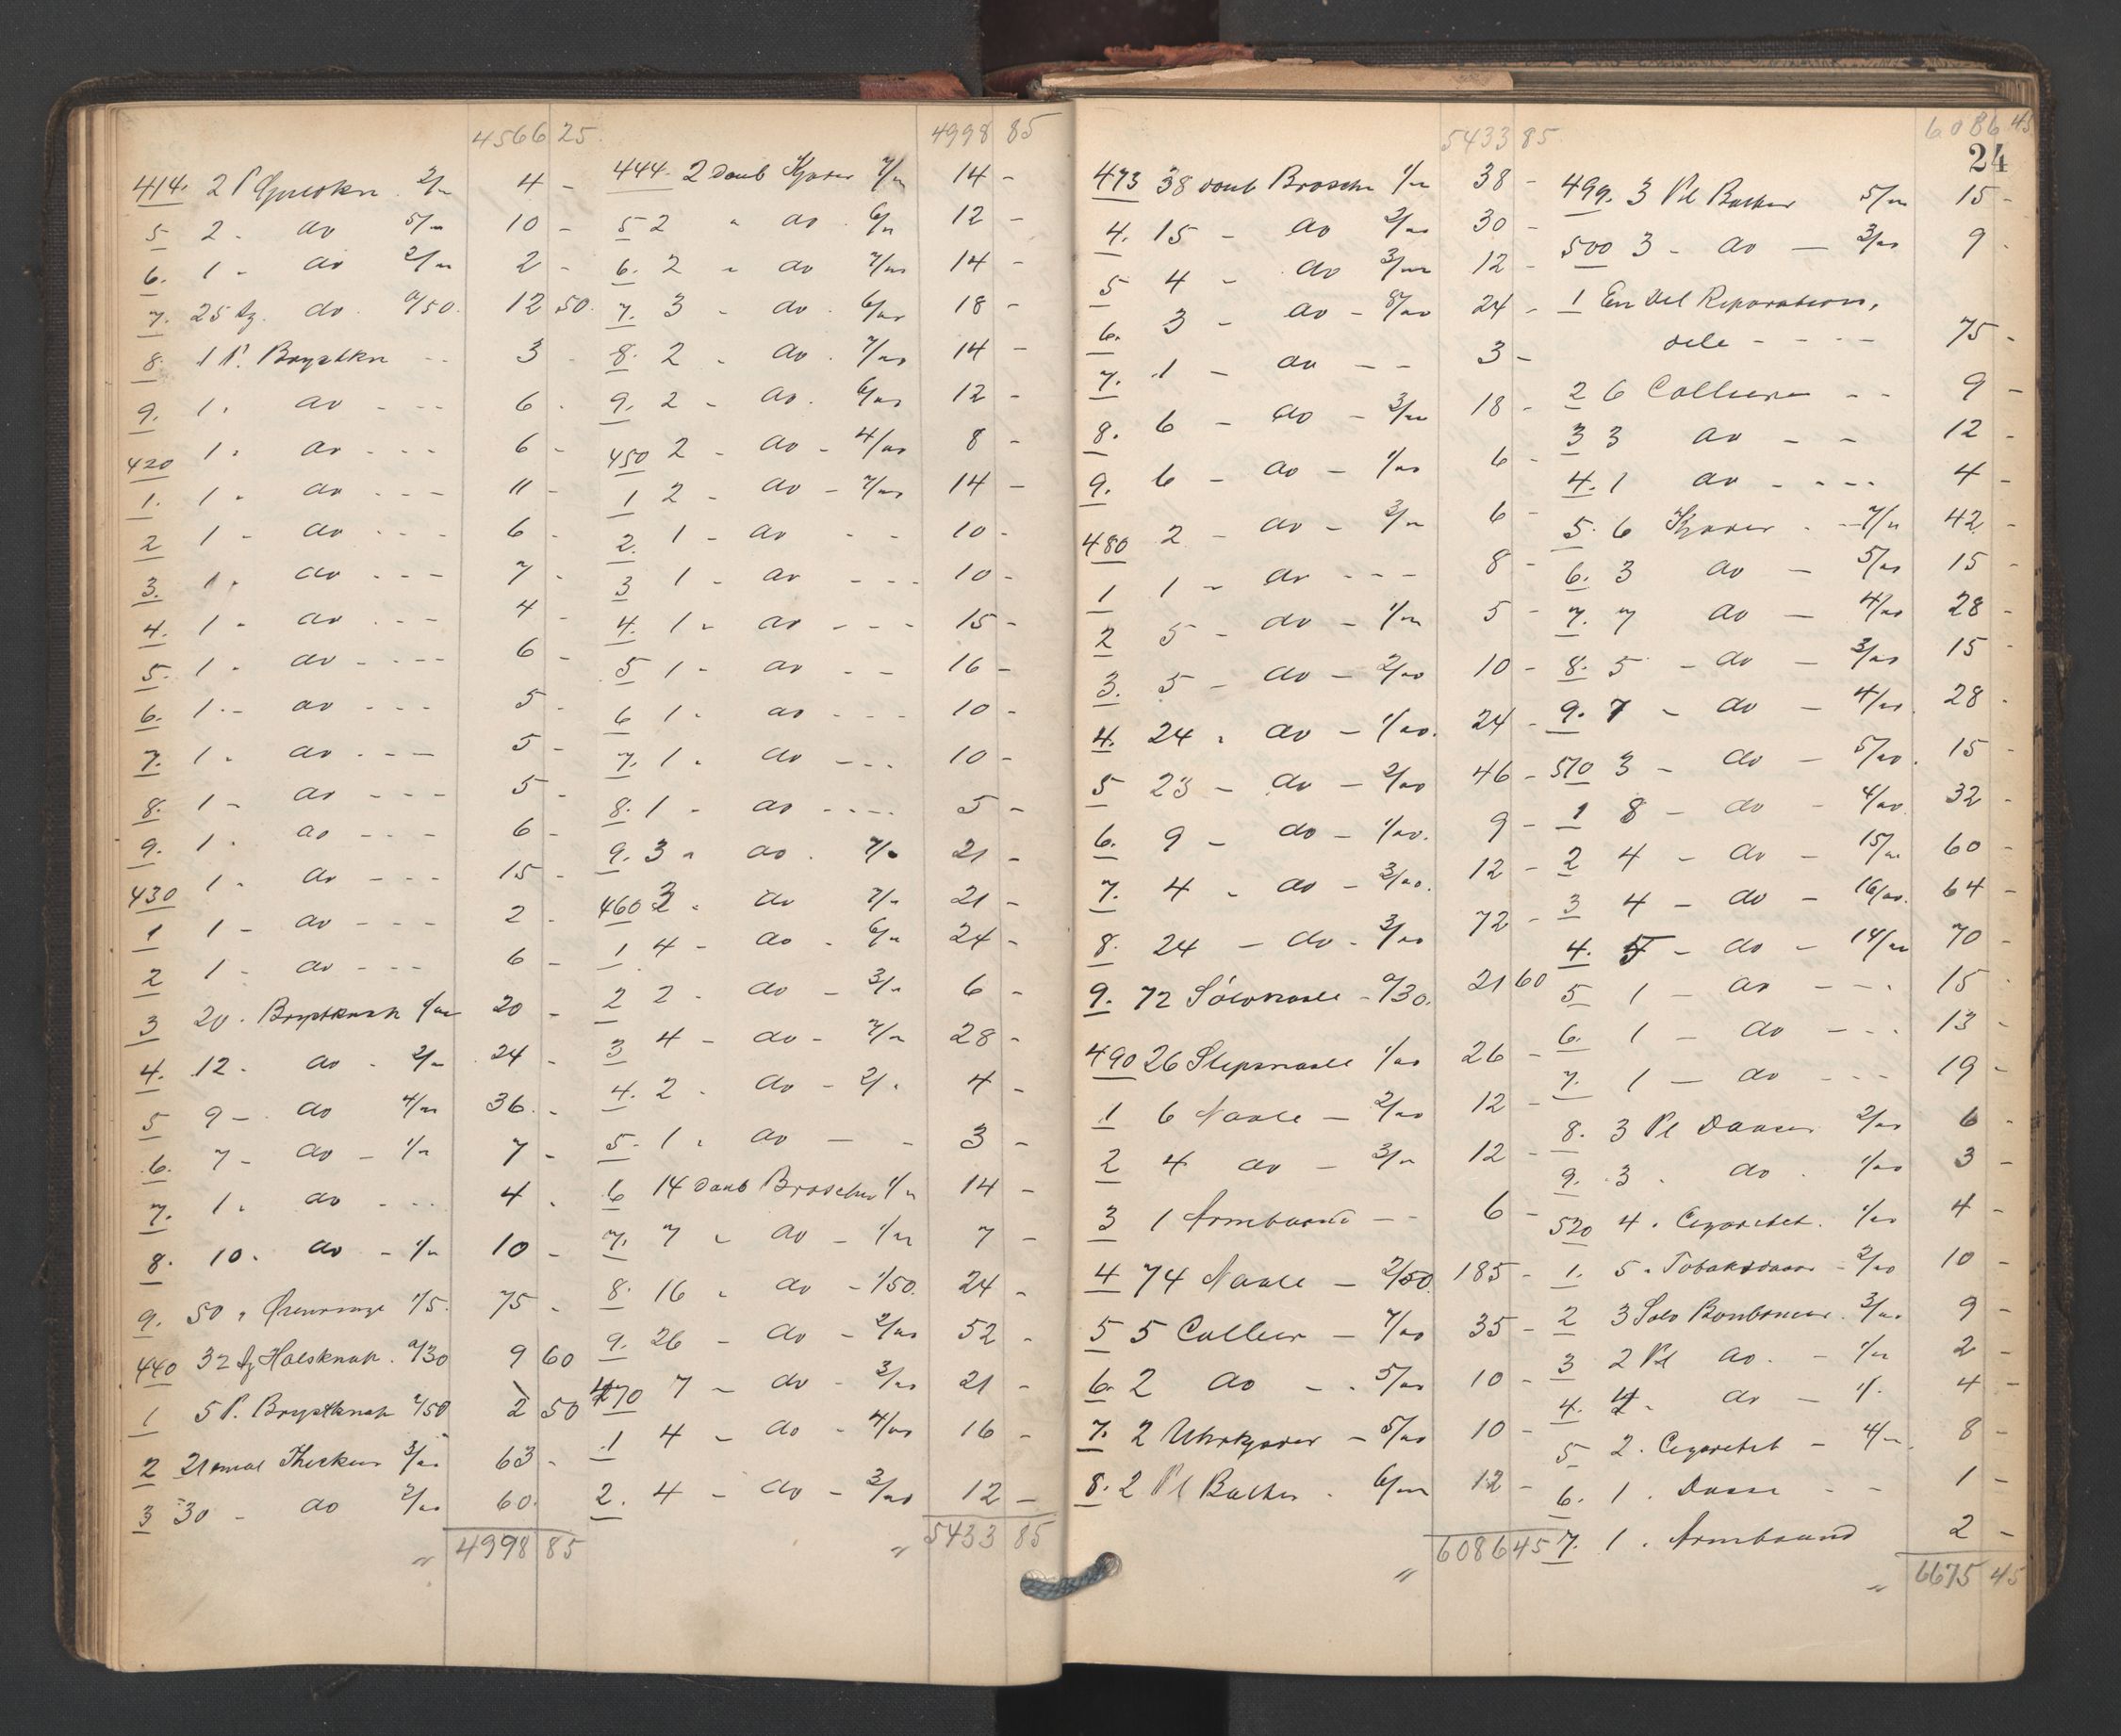 4566 25
414. 2 P. 2/ 4 -
5 2 - do 5/ 10 -
6. 1 - do 2/ 2 -
7. 25 do. a/50. 12 50.
8. 1 P. Brystkn - - 3 -
9. 1 . do - - - 6 .
420 1 . do - - - 6 -
1. 1 . do - - - 11 -
2 1 - do - - - 6 -
3. 1 . do - - - 7 -
4. 1 - do - - - 4 -
5. 1 - do - - - 6 -
6. 1 - do - - - 5 -
7. 1 . do - - - 5 -
8. 1 - do - - - 5 -
9. 1 . do - - - 6 -
430 1 . do - - - 15 -
1 1 - do - - - 2 -
2 1 - do - - - 6 -
3 20 . Brystknap 1/ 20 -
4. 12 . do - 2/ 24 -
5 9 - do 4/ 36 -
6. 7 - do - 1/ 7 -
7. 1 . do - - - 4 -
8. 10 . do - 1/ 10 -
9. 50 . Ørenringe 1/5. 75 -
440 32 Halsknap. a/30 9 60
1 5 P. Brystknap a/50 2 50
2 21 emal Theskeer 3/ 63 -
3 30 - do 2/ 60.
" 4998 85
4998 85
444. 2 Doub Kjæder 7/ 14 -
5 2 " do 6/ 12 -
6. 2 " do 7/ 14 -
7. 3 - do . 6/ 18 -
8. 2 " do . 7/ 14 -
9. 2 - do . 6/ 12 -
450 2 - do - 4/ 8 -
1 2 - do - 7/ 14 -
2. 1 - do - - 10 -
3 1 - do - - - 10 -
4. 1 - do - - - 15 -
5 1 - do - - 16 -
6 1 - do - - - 10 -
7. 1 . do - - - 10 -
8. 1 - do - - - 5 -
9. 3 " do . 7/ 21 -
460 3 . do 7/ 21 -
1 4 - do - 6/ 24 -
2 2 - do - 3/ 6 -
3 4 - do - 7/ 28 -
4. 2 . do - 2/ 4 -
5. 1 . do - - 3 -
6 14 Doub Broscher 1/ 14 -
7. 7 " do - 1/ 7 -
8. 16 " do - 1/50. 24 -
9. 26 - do - 2/ 52 -
470 7 - do - 3/ 21 -
1 4 - do - 4/ 16 -
2. 4 - do - 3/ 12 -
" 5433 85
5433 85
473 38 Doub Brosche 1/ 38 -
4. 15 - do 2/ 30 -
5 4 - do 3/ 12 -
6. 3 - do - 8/ 24 -
7. 1 - do - - 3 -
8. 6 - do - 3/ 18 -
9. 6 - do - 1/ 6 -
480 2 - do - 3/ 6 -
1 1 - do - - - 8 -
2 5 - do - 1/ 5 -
3. 5 - do - 2/ 10 -
4. 24 . do - 1/ 24 -
5 23 - do - 2/ 46 -
6. 9 - do - 1/ 9 -
7. 4 - do - 3/ 12 -
8. 24 - do - 3/ 72 -
9. 72 Sølvnaale - a/30. 21 60
490 26 Slipsnaale 1/ 26 -
1 6 Naale - 2/ 12 -
2 4 do - 3/ 12 -
3 1 Armbaand - - 6 -
4 74 Naale - 2/50. 185 -
5 5 Collier - 7/ 35 -
6. 2 do - . 5/ 10 -
7. 2 Uhrkjæder - 5/ 10 -
8. 2 Pl Bakker - 6/ 12 -
" 6086 45
6086 45
24
499. 3 Pl Bakker 5/ 15 -
500 3 - do - 3/ 9 -
1 En Del Reparations,
dele - - - - 75 -
2 6 Collier - - 9 -
3 3 do - - 12 -
4. 1 do - - - - 4 -
5. 6 Kjæder - - 7/ 42 -
6. 3 do - 5/ 15 -
7. 7 do - 4/ 28 -
8. 5 - do - 3/ 15 -
9. 7 - do - 4/ 28 -
510 3 - do - 5/ 15 -
1 8 - do - 4/ 32 -
2 4 - do - 15/ 60 -
3 4 - do - 16/ 64 -
4. 5 - do - 14/ 70 -
5 1 - do - - - 15 -
6. 1 - do - - - 13 -
7. 1 - do - - - 19 -
8. 3 Pl Daaser 2/ 6 -
9. 3 . do . 1/ 3 -
520 4 . Cigaretet. 1/ 4 -
1. 5 . Tobaksdaase - 2/ 10 -
2 3 Sølv Bonbonier. 3/ 9 -
3 2 Pl do. - 1/ 2 -
4. 4 - do - 1/ 4 -
5 2 . Cigaretet - 4/ 8 -
6. 1 . Daase - - 1 -
7. 1 . Armbaand 2 -
" 6675 45